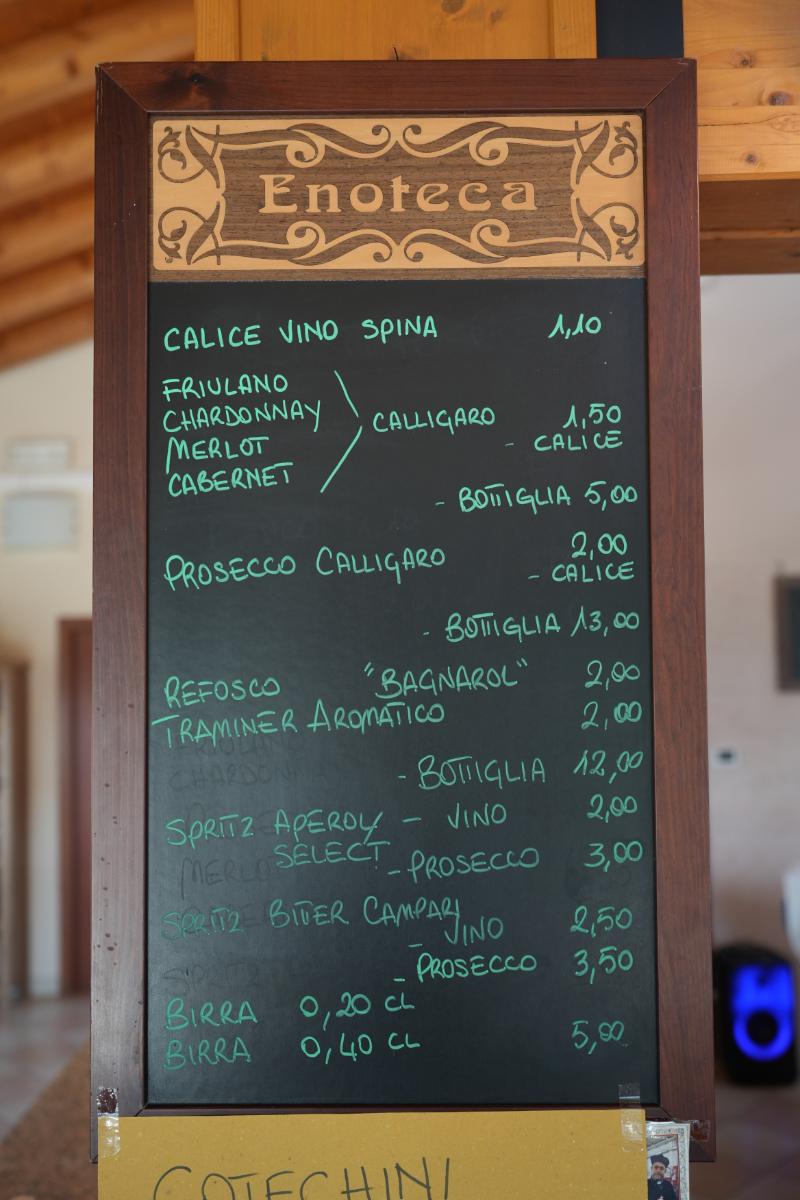 Enoteca
CALICE VINO SPINA 1,10
FRIULANO
CHARDONNAY
MERLOT
CABERNET
CALLIGARO 1,50
- CALICE
- BOTTIGLIA 5,00
PROSECCO CALLIGARO 2,00
- CALICE
- BOTTIGLIA 13,00
REFOSCO "BAGNAROL" 2,00
TRAMINER AROMATICO 2,00
- BOTTIGLIA 12,00
SPRITZ APEROL/ - VINO 2,00
SELECT - PROSECCO 3,00
SPRITZ BITTER CAMPARI
- VINO 2,50
- PROSECCO 3,50
BIRRA 0,20 CL
BIRRA 0,40 CL 5,00
COTECHINI